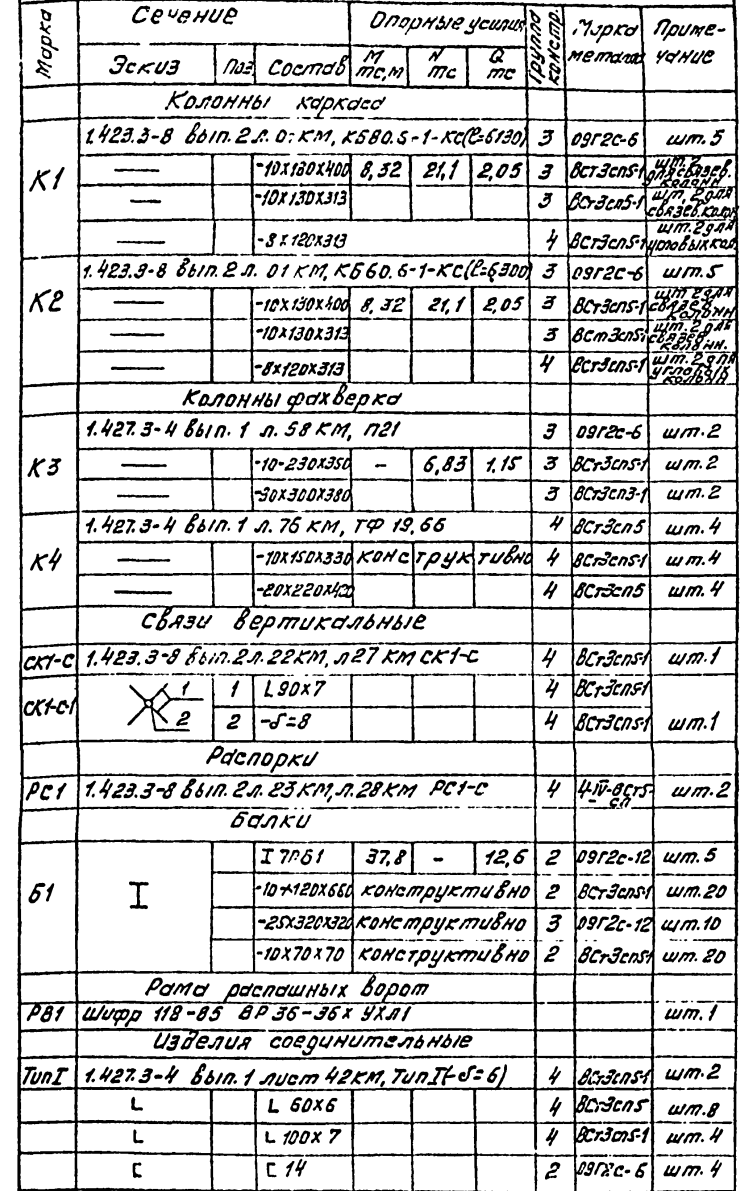 Марка Сечение Опорные усилия Группа констр. Марка металла Примечание
Эскиз Поз Состав М тс,м N тс Q тс
Колонны каркаса
К1 1.423.3-8 вып.2 л. 01 КМ, К580.5-1-КС(ℓ=6130) 3 09Г2С-6 шт.5
— -10х130х400 8,32 21,1 2,05 3 ВСт3сп5-1 шт.2 для связев. колонн
— -10х130х313 3 ВСт3сп5-1 шт.2 для связев. колон
— -8х120х313 4 ВСт3сп5-1 шт.2 для угловых кол.
К2 1.423.3-8 вып.2 л. 01 КМ, К560.6-1-КС(ℓ=6300) 3 09Г2С-6 шт.5
— -10х130х400 8,32 21,1 2,05 3 ВСт3сп5-1 шт.2 для связев. колонн
— -10х130х313 3 ВСт3сп5-1 шт.2 для связев. колонн.
— -8х120х313 4 ВСт3сп5-1 шт.2 для угловых колонн
Колонны фахверка
К3 1.427.3-4 вып.1 л.58 КМ, П21 3 09Г2С-6 шт.2
— -10-230х350 - 6,83 1,15 3 ВСт3сп5-1 шт.2
— -30х300х380 3 ВСт3сп3-1 шт.2
К4 1.427.3-4 вып.1 л.76 КМ, ТФ 19,66 4 ВСт3сп5 шт.4
— -10х150х330 конструктивно 4 ВСт3сп5-1 шт.4
— -20х220х420 4 ВСт3сп5 шт.4
Связи вертикальные
СК1-С 1.423.3-8 вып.2 л.22КМ, л27 КМ СК1-С 4 ВСт3сп5-1 шт.1
СК1-С1 1 1 L 90х7 4 ВСт3сп5-1
2 2 -δ=8 4 ВСт3сп5-1 шт.1
Распорки
РС1 1.423.3-8 вып.2 л.23 КМ, л.28КМ РС1-С 4 4-IV-ВСт5-сп шт.2
Балки
Б1 I I 70Б1 37,8 - 12,6 2 09Г2С-12 шт.5
-10х120х660 конструктивно 2 ВСт3сп5-1 шт.20
-25х320х320 конструктивно 3 09Г2С-12 шт.10
-10х70х70 конструктивно 2 ВСт3сп5-1 шт.20
Рама распашных ворот
РВ1 Шифр 118-85 ВР 36-36х УХЛ1 шт.1
Изделия соединительные
Тип I 1.427.3-4 вып.1 лист 42КМ, Тип I(-δ=6) 4 ВСт3сп5-1 шт.2
L L 60х6 4 ВСт3сп5 шт.8
L L 100х7 4 ВСт3сп5-1 шт.4
[ [ 14 2 09Г2С-6 шт.4